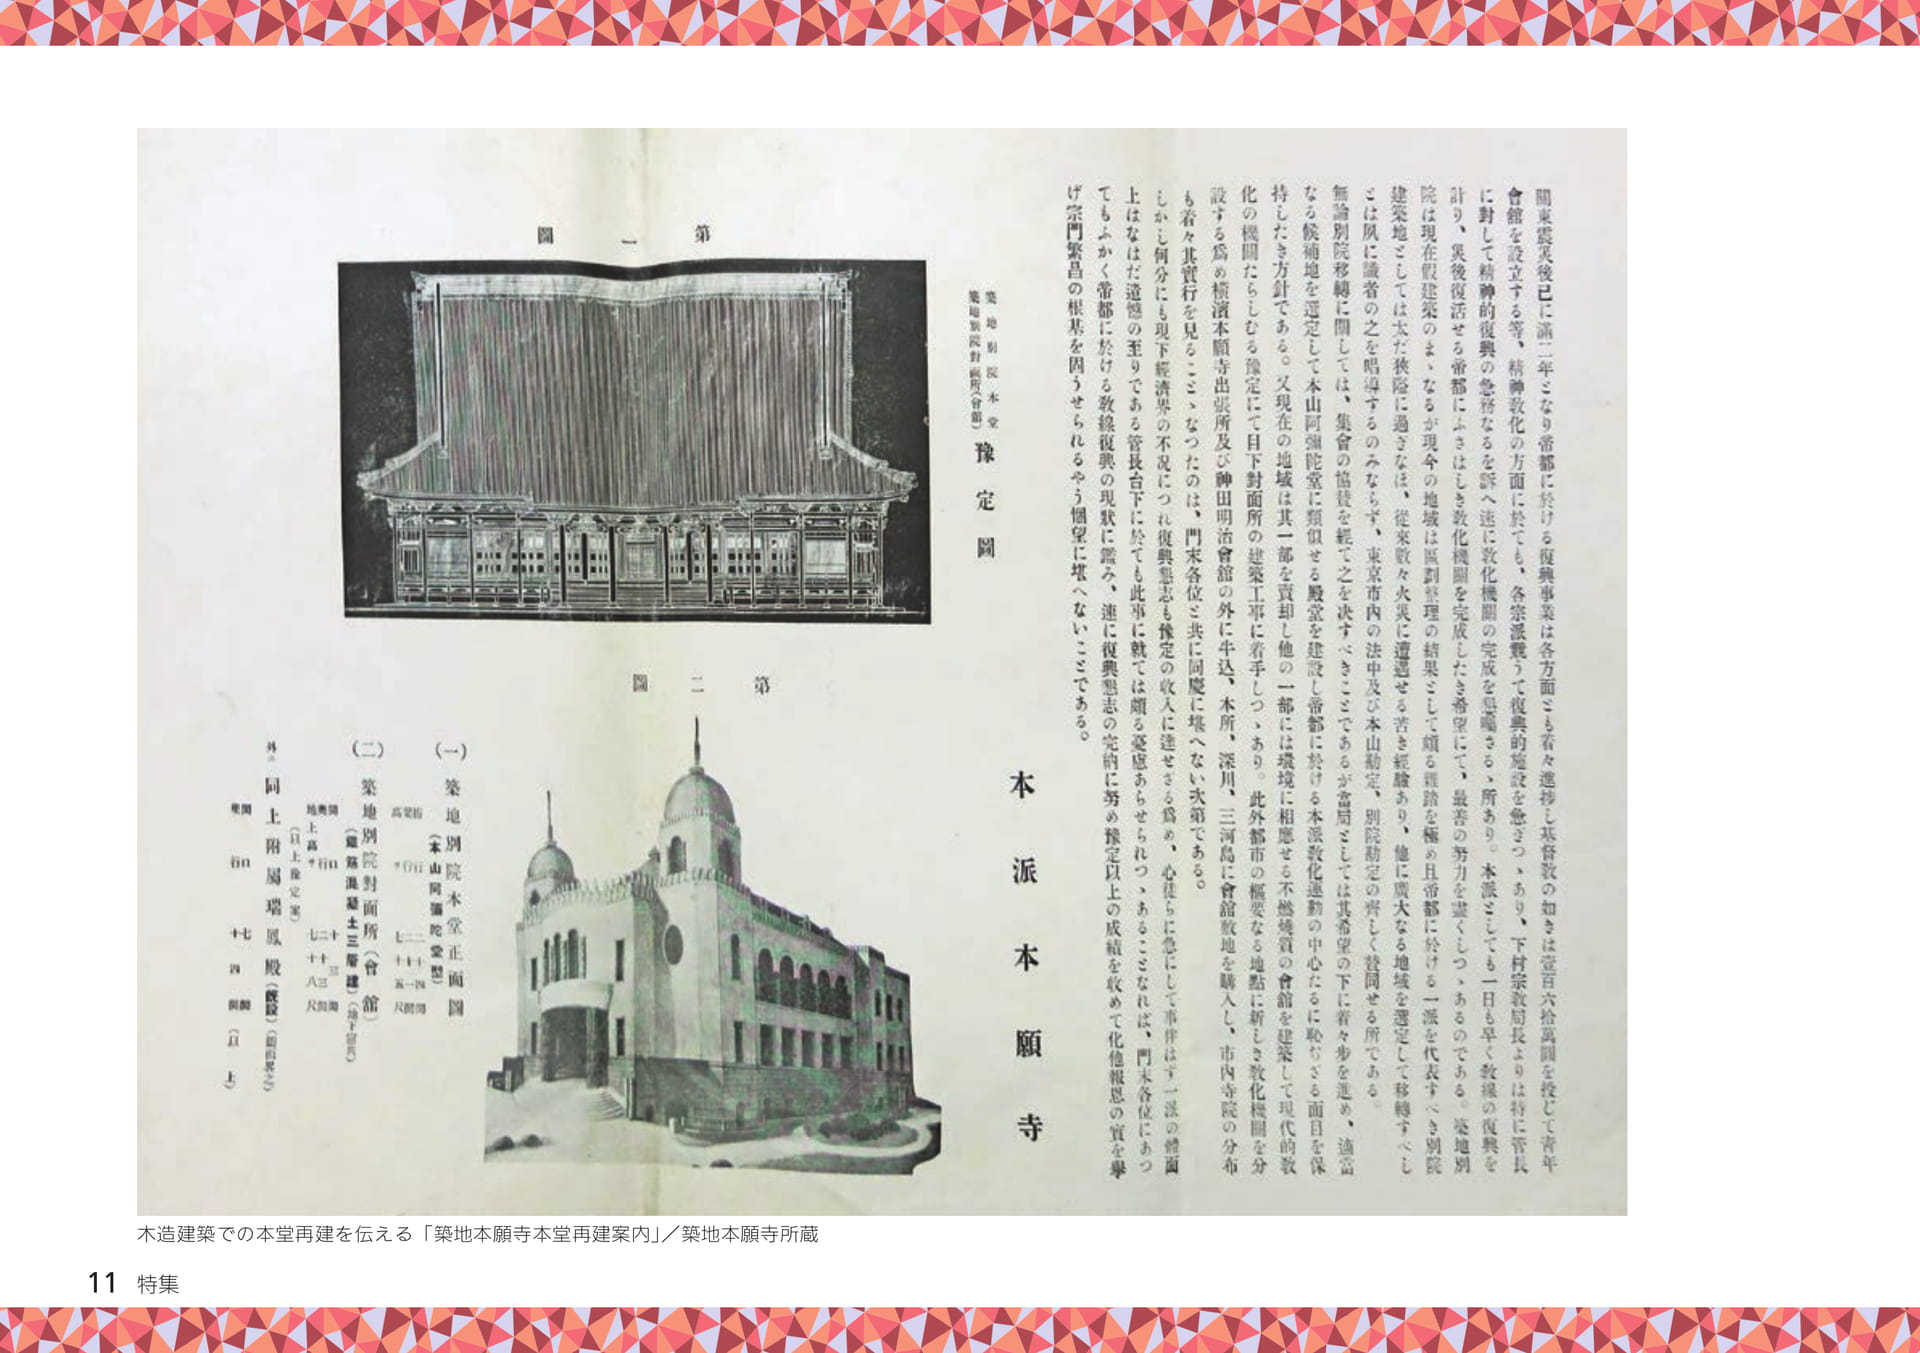 關東震災後已に滿二年となり帝都に於ける復興事業は各方面とも着々進捗し基督敎の如きは壹百六拾萬圓を投じて靑年
會館を設立する等、精神敎化の方面に於ても、各宗派競うて復興的施設を急ぎつゝあり、下村宗敎局長よりは特に管長
に對して精神的復興の急務なるを訴へ速に敎化機關の完成を懇囑さるゝ所あり。本派としても一日も早く敎線の復興を
計り、災後復活せる帝都にふさはしき敎化機關を完成したき希望にて、最善の努力を盡くしつゝあるのである。築地別
院は現在假建築のまゝなるが現今の地域は區劃整理の結果として頗る雜踏を極め且帝都に於ける一派を代表すべき別院
建築地としては太だ狹隘に過ぎなほ、從來數々火災に遭遇せる苦き經驗あり、他に廣大なる地域を選定して移轉すべし
とは夙に識者の之を唱導するのみならず、東京市內の法中及び本山勘定、別院勘定の齊しく賛同せる所である。
無論別院移轉に關しては、集會の協賛を經て之を決すべきことであるが當局としては其希望の下に着々步を進め、適當
なる候補地を選定して本山阿彌陀堂に類似せる殿堂を建設し帝都に於ける本派敎化運動の中心たるに恥ぢざる面目を保
持したき方針である。又現在の地域は其一部を賣却し他の一部には環境に相應せる不燃燒質の會館を建築して現代的敎
化の機關たらしむる豫定にて目下對面所の建築工事に着手しつゝあり。此外都市の樞要なる地點に新しき敎化機關を分
設する爲め橫濱本願寺出張所及び神田明治會館の外に牛込、本所、深川、三河島に會館敷地を購入し、市內寺院の分布
も着々其實行を見ることゝなつたのは、門末各位と共に同慶に堪へない次第である。
しかし何分にも現下經濟界の不況につれ復興懇志も豫定の收入に達せざる爲め、心徒らに急にして事伴はず一派の體面
上はなはだ遺憾の至りである管長台下に於ても此事に就ては頗る憂慮あらせられつゝあることなれば、門末各位にあつ
てもふかく帝都に於ける敎線復興の現狀に鑑み、速に復興懇志の完納に努め豫定以上の成績を收めて化他報恩の實を擧
げ宗門繁昌の根基を固うせられるやう懇望に堪へないことである。
本派本願寺
築地別院本堂
築地別院對面所(會館)
豫定圖
第一圖
第二圖
(一) 築地別院本堂正面圖
(本山阿彌陀堂型)
桁行 二十四間
梁行 二十一間
高サ 七十五尺
(二) 築地別院對面所(會館)
(鐵筋混凝土三階建)(地下室共)
間口 十三間
奧行 二十三間
地上高サ 七十八尺
(以上豫定案)
外ニ 同上附屬瑞鳳殿(旣設)(圖面畧之)
間口 七間
奧行 十四間 (以上)
木造建築での本堂再建を伝える「築地本願寺本堂再建案内」／築地本願寺所蔵
11 特集